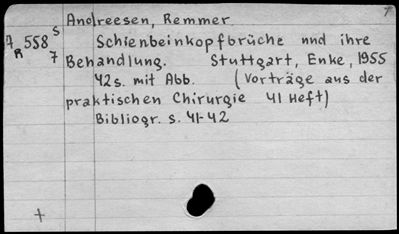 Andreesen, Remmer
A 558 S
R 7
Schienbeinkopfbrüche und ihre
Behandlung. Stuttgart, Enke, 1955
42s. mit Abb. (Vorträge aus der
praktischen Chirurgie 41 Heft)
Bibliogr. s. 41-42
+